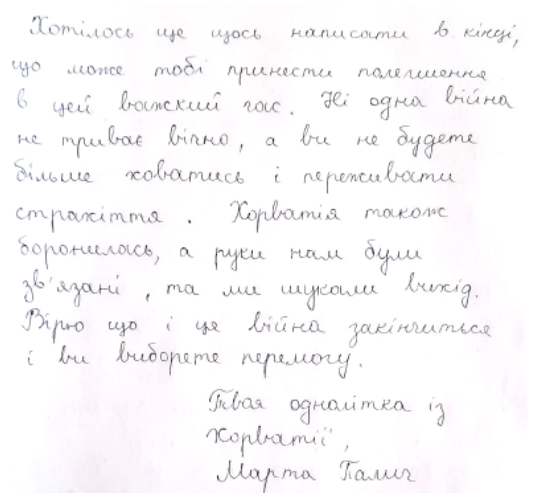 Хотілось ще щось написати в кінці,
що може тобі принести полегшення
в цей важкий час. Ні одна війна
не триває вічно, а ви не будете
більше ховатись і переживати
страхіття. Хорватія також
боронилась, а руки нам були
зв'язані, та ми шукали вихід.
Вірю що і це війна закінчиться
і ви виборете перемогу.
Твоя однолітка із
Хорватії,
Марта Палич